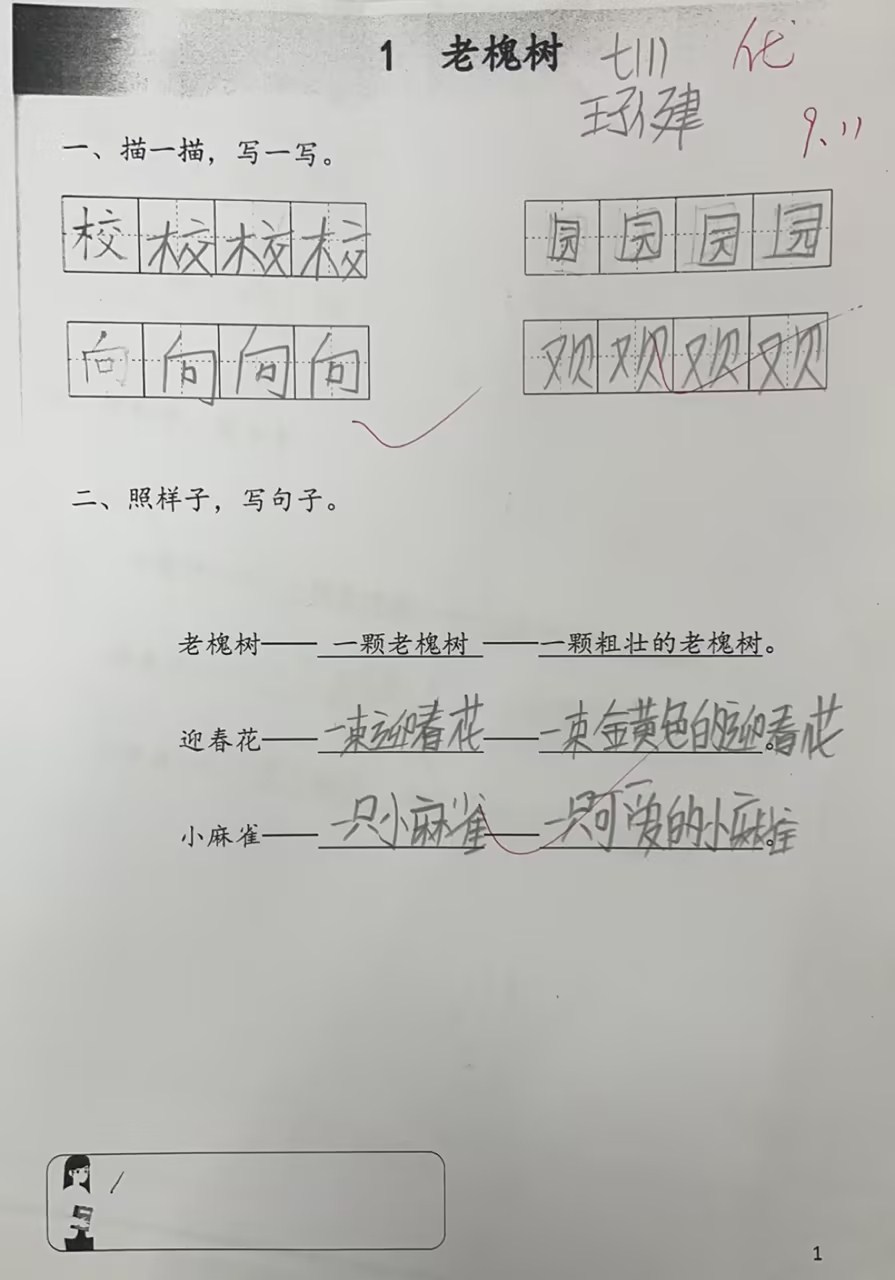 1 老槐树 七(1) 优
王孑建
9.11
一、描一描，写一写。
校 校 校 校 园 园 园 园
向 向 向 向 欢 欢 欢 欢
二、照样子，写句子。
老槐树——一颗老槐树——一颗粗壮的老槐树。
迎春花——一束迎春花——一束金黄色的迎春花。
小麻雀——一只小麻雀——一只可爱的小麻雀。
1